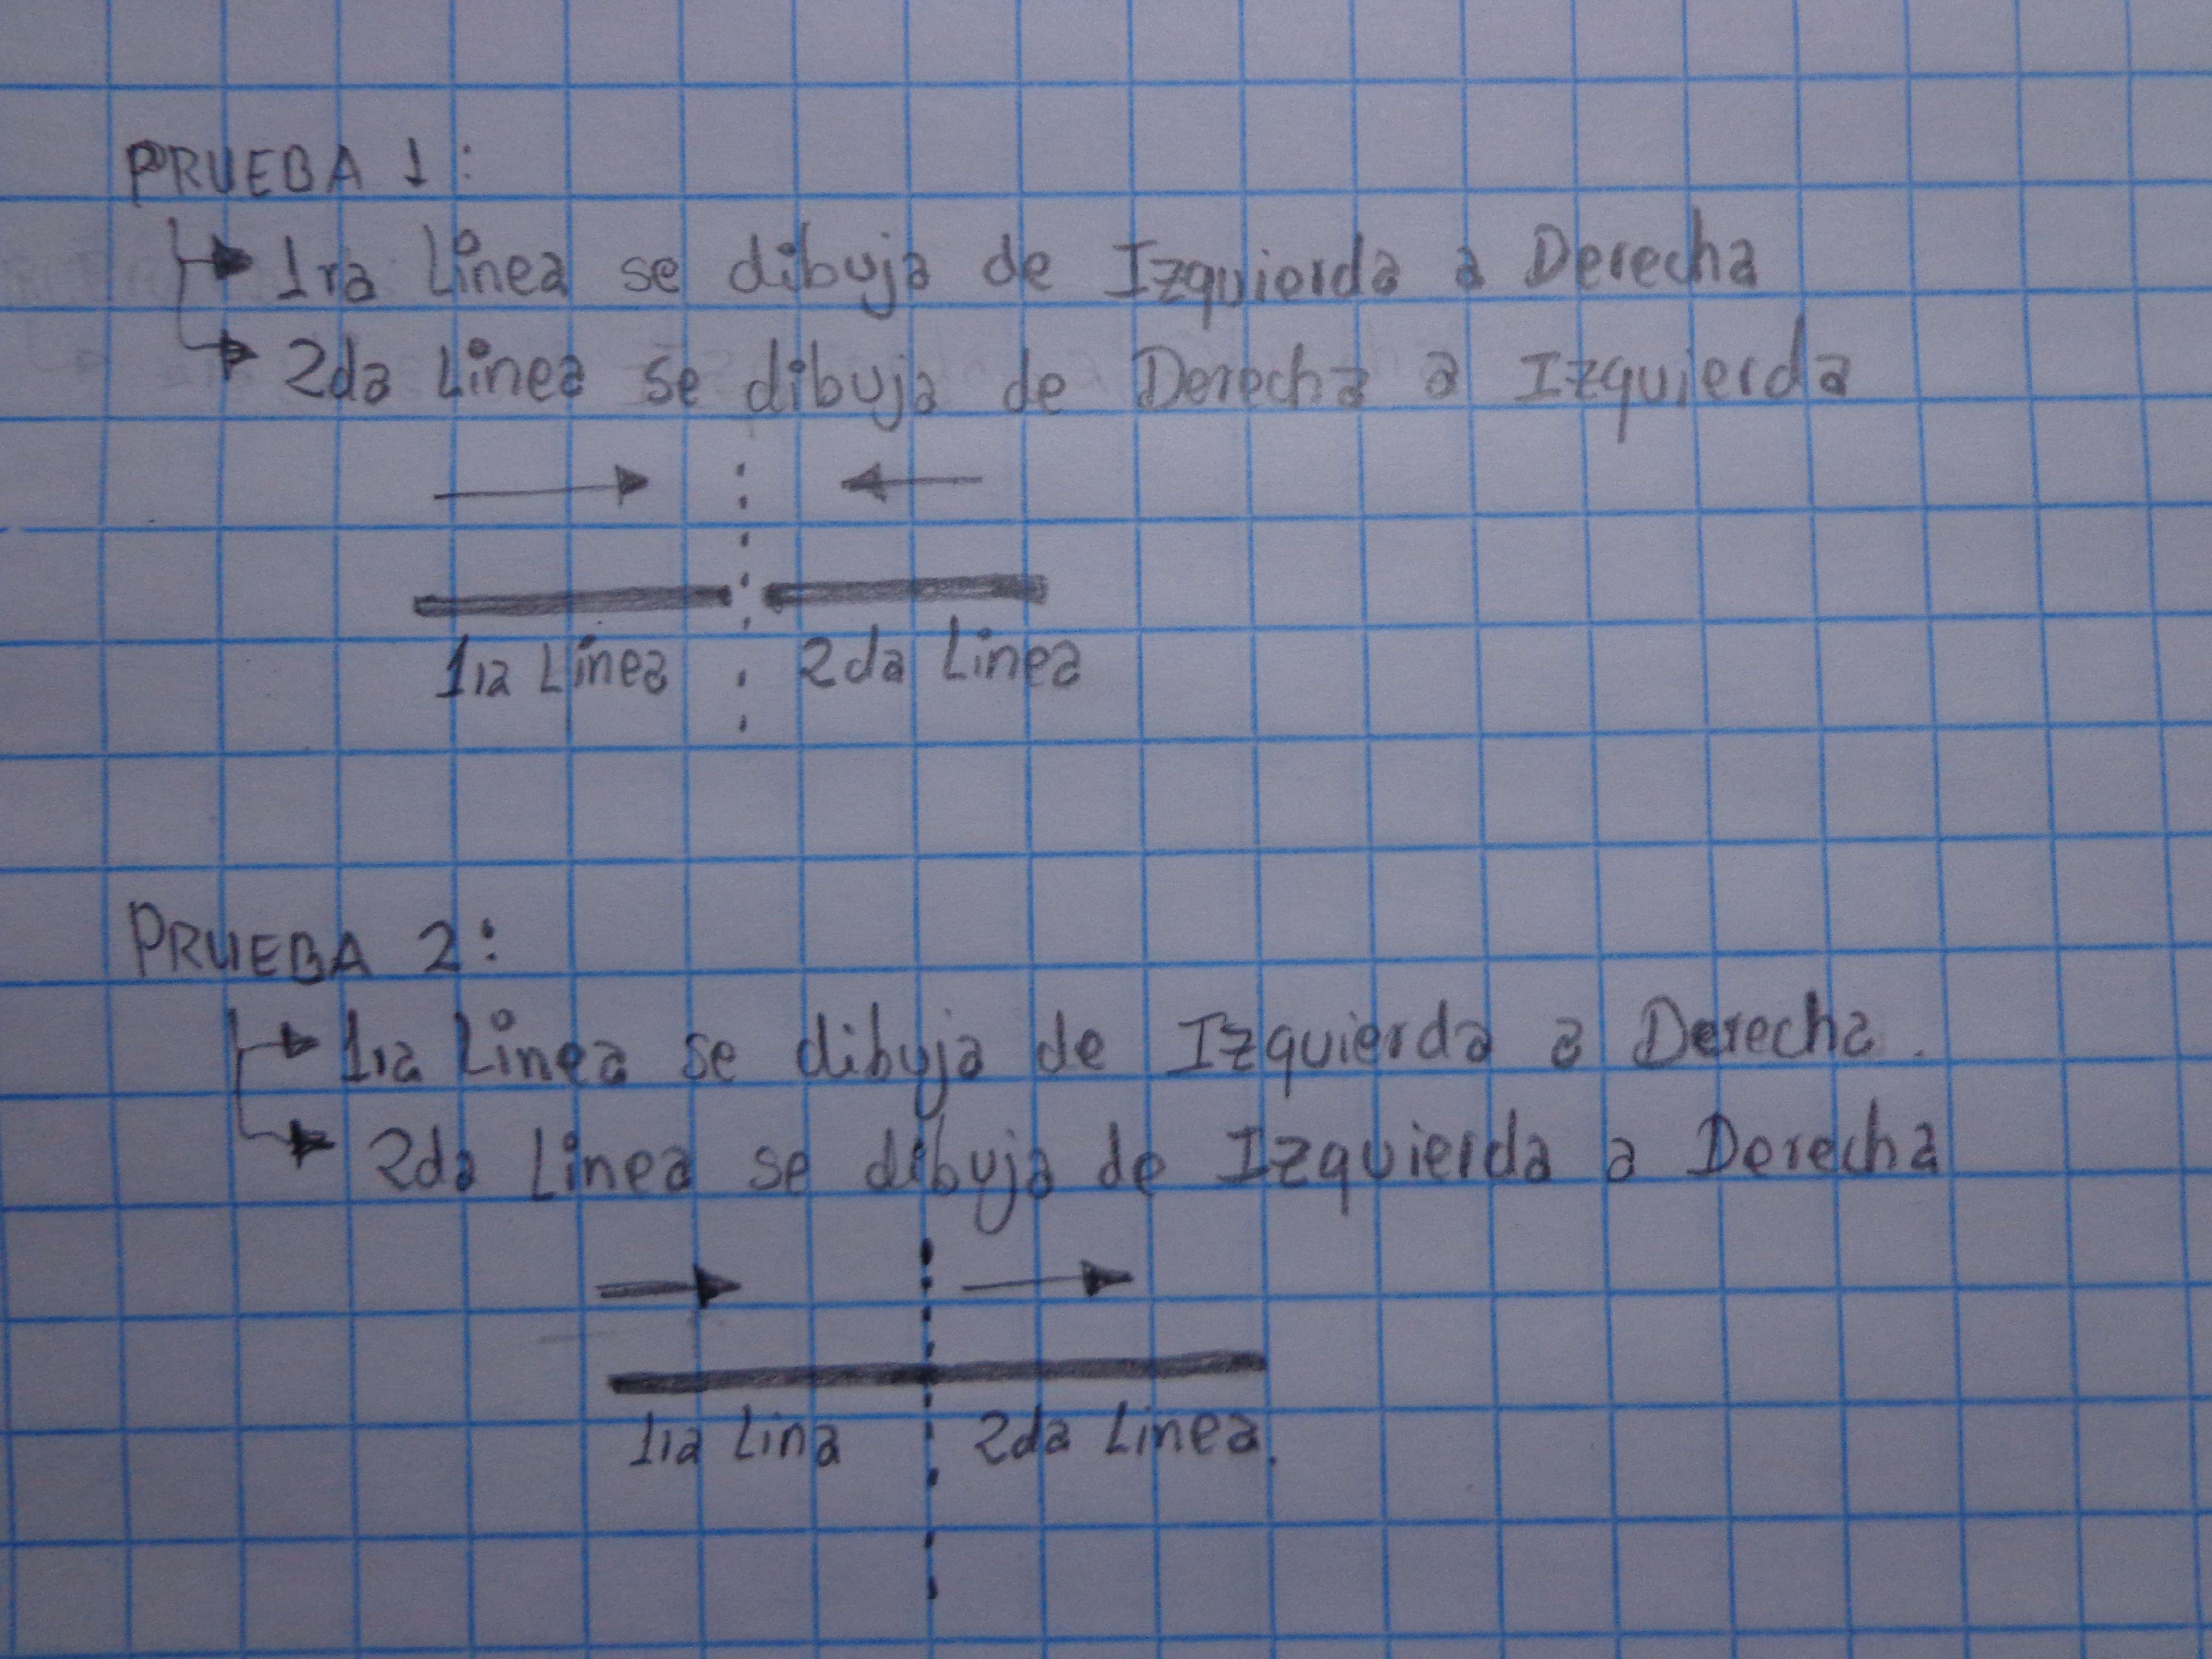 PRUEBA 1:
1ra Línea se dibuja de Izquierda a Derecha
2da Línea se dibuja de Derecha a Izquierda
1ra Línea 2da Linea
PRUEBA 2:
1ra Línea se dibuja de Izquierda a Derecha.
2da Linea se dibuja de Izquierda a Derecha
1ra Lina 2da Linea.